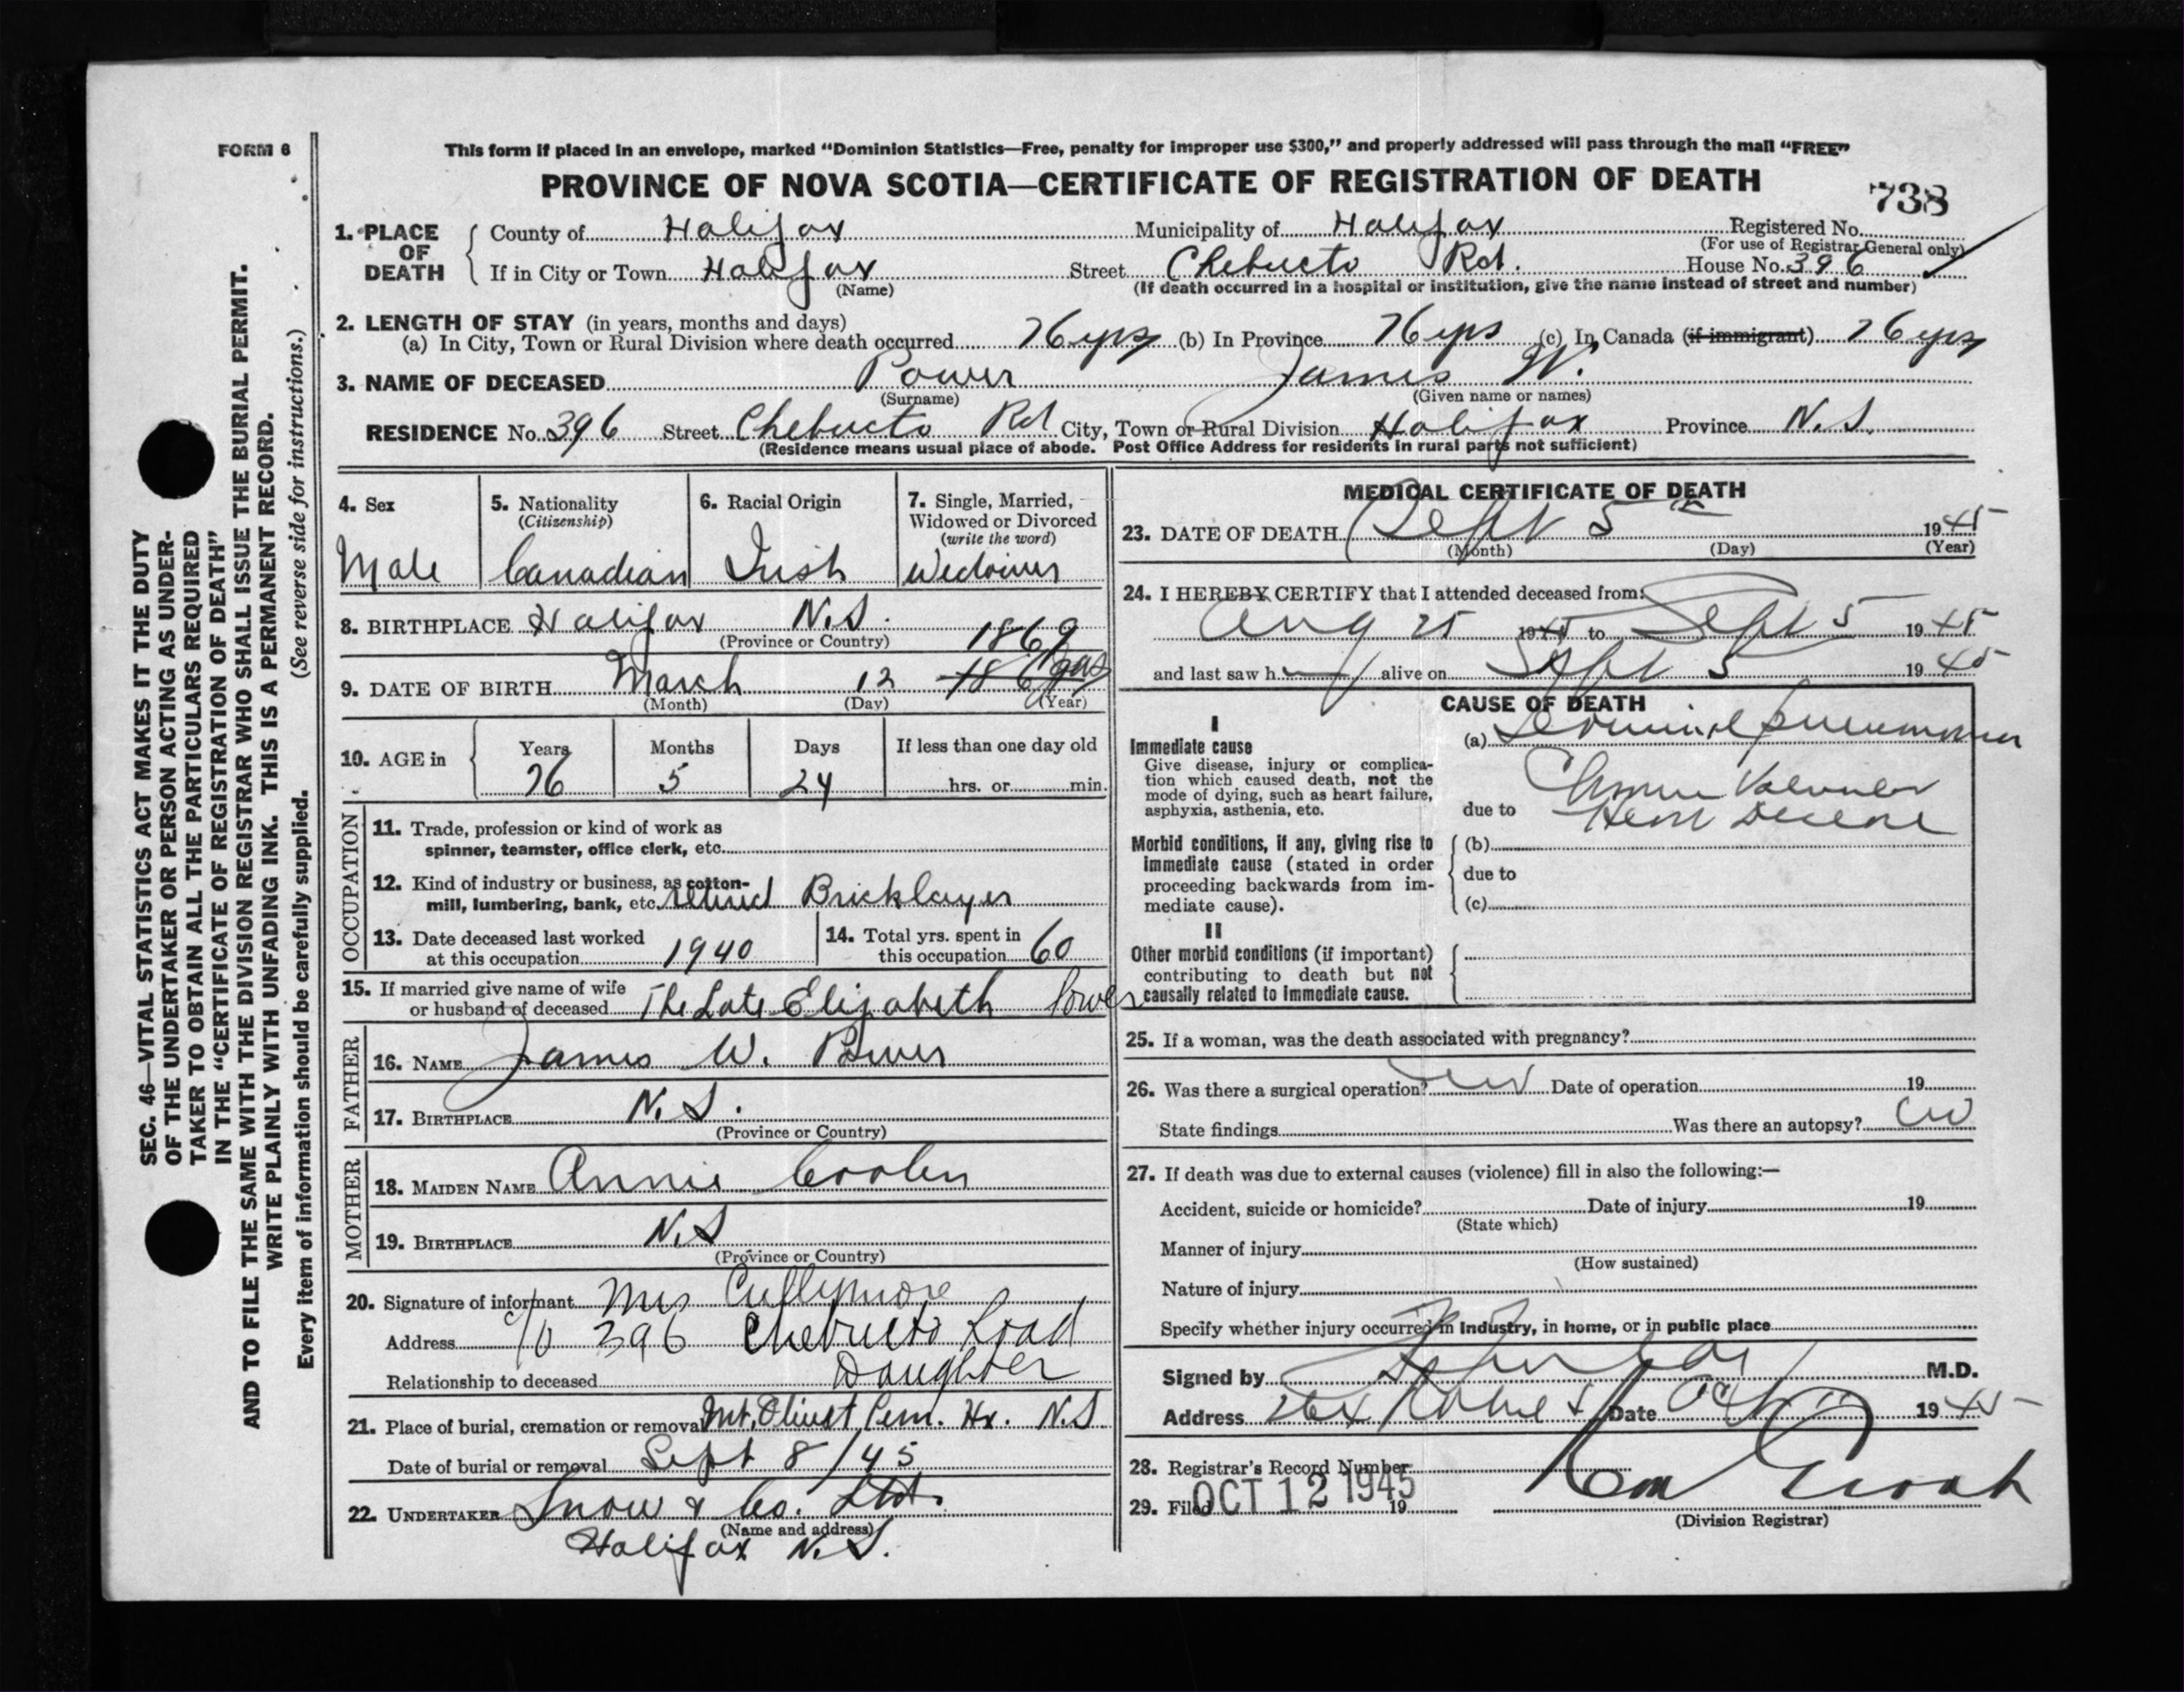 FORM 6
This form if placed in an envelope, marked “Dominion Statistics—Free, penalty for improper use $300,” and properly addressed will pass through the mail “FREE”
PROVINCE OF NOVA SCOTIA—CERTIFICATE OF REGISTRATION OF DEATH
738
1. PLACE OF DEATH
County of Halifax Municipality of Halifax Registered No.
(For use of Registrar General only)
If in City or Town Halifax Street Chebucto Rd. House No. 396
(Name) (If death occurred in a hospital or institution, give the name instead of street and number)
2. LENGTH OF STAY (in years, months and days)
(a) In City, Town or Rural Division where death occurred 76 yrs (b) In Province 76 yrs (c) In Canada (if immigrant) 76 yrs
3. NAME OF DECEASED Power James W.
(Surname) (Given name or names)
RESIDENCE No. 396 Street Chebucto Rd City, Town or Rural Division Halifax Province N.S.
(Residence means usual place of abode. Post Office Address for residents in rural parts not sufficient)
4. Sex
Male
5. Nationality
(Citizenship)
Canadian
6. Racial Origin
Irish
7. Single, Married,
Widowed or Divorced
(write the word)
Widower
8. BIRTHPLACE Halifax N.S.
(Province or Country)
1869
9. DATE OF BIRTH March 12
(Month) (Day) (Year)
10. AGE in
Years Months Days If less than one day old
76 5 24 hrs. or min.
OCCUPATION
11. Trade, profession or kind of work as
spinner, teamster, office clerk, etc.
12. Kind of industry or business, as cotton-
mill, lumbering, bank, etc. retired Bricklayer
13. Date deceased last worked
at this occupation 1940
14. Total yrs. spent in
this occupation 60
15. If married give name of wife
or husband of deceased The Late Elizabeth Power
FATHER
16. NAME James W. Power
17. BIRTHPLACE N.S.
(Province or Country)
MOTHER
18. MAIDEN NAME Annie Coolen
19. BIRTHPLACE N.S
(Province or Country)
20. Signature of informant Mrs Cullymore
Address c/o 396 Chebucto Road
Relationship to deceased Daughter
21. Place of burial, cremation or removal Mt. Olivet Cem. Hx. N.S
Date of burial or removal Sept 8/45
22. UNDERTAKER Snow & Co. Ltd.
(Name and address)
Halifax N.S.
MEDICAL CERTIFICATE OF DEATH
23. DATE OF DEATH Sept 5th 1945
(Month) (Day) (Year)
24. I HEREBY CERTIFY that I attended deceased from:
Aug 25 1945 to Sept 5 1945
and last saw h alive on Sept 5 1945
CAUSE OF DEATH
I
Immediate cause
Give disease, injury or complica-
tion which caused death, not the
mode of dying, such as heart failure,
asphyxia, asthenia, etc.
(a) Terminal pneumonia
due to Chronic Valvular
Heart Disease
Morbid conditions, if any, giving rise to
immediate cause (stated in order
proceeding backwards from im-
mediate cause).
(b)
due to
(c)
II
Other morbid conditions (if important)
contributing to death but not
causally related to immediate cause.
25. If a woman, was the death associated with pregnancy?
26. Was there a surgical operation? no Date of operation 19
State findings Was there an autopsy? no
27. If death was due to external causes (violence) fill in also the following:—
Accident, suicide or homicide? Date of injury 19
(State which)
Manner of injury
(How sustained)
Nature of injury
Specify whether injury occurred in Industry, in home, or in public place
Signed by M.D.
Address Date Oct 11 1945
28. Registrar's Record Number
29. Filed OCT 12 1945 19
(Division Registrar)
SEC. 46—VITAL STATISTICS ACT MAKES IT THE DUTY
OF THE UNDERTAKER OR PERSON ACTING AS UNDER-
TAKER TO OBTAIN ALL THE PARTICULARS REQUIRED
IN THE “CERTIFICATE OF REGISTRATION OF DEATH”
AND TO FILE THE SAME WITH THE DIVISION REGISTRAR WHO SHALL ISSUE THE BURIAL PERMIT.
WRITE PLAINLY WITH UNFADING INK. THIS IS A PERMANENT RECORD.
Every item of information should be carefully supplied. (See reverse side for instructions.)